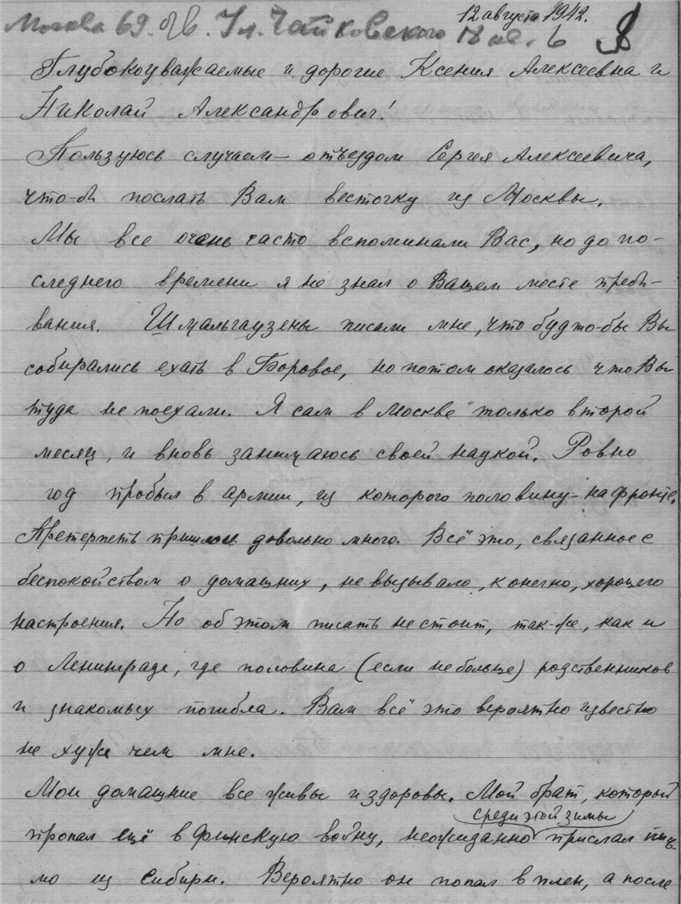 12 августа 1942.
Москва 69. Ул. Чайковского 18 кв. 6
Глубокоуважаемые и дорогие Ксения Алексеевна и
Николай Александрович!
Пользуюсь случаем – отъездом Сергея Алексеевича,
что-б послать Вам весточку из Москвы.
Мы все очень часто вспоминали Вас, но до по-
следнего времени я не знал о Вашем месте пребы-
вания. Шмальгаузены писали мне, что будто-бы Вы
собирались ехать в Боровое, но потом оказалось что Вы
туда не поехали. Я сам в Москве только второй
месяц, и вновь занимаюсь своей наукой. Ровно
год пробыл в армии, из которого половину – на фронте.
Претерпеть пришлось довольно много. Всё это, связанное с
беспокойством о домашних, не вызывало, конечно, хорошего
настроения. Но об этом писать не стоит, так-же, как и
о Ленинграде, где половина (если не больше) родственников
и знакомых погибла. Вам всё это вероятно известно
не хуже чем мне.
Мои домашние все живы и здоровы. Мой брат, который
среди этой зимы
пропал ещё в финскую войну, неожиданно прислал пись-
мо из Сибири. Вероятно он попал в плен, а после